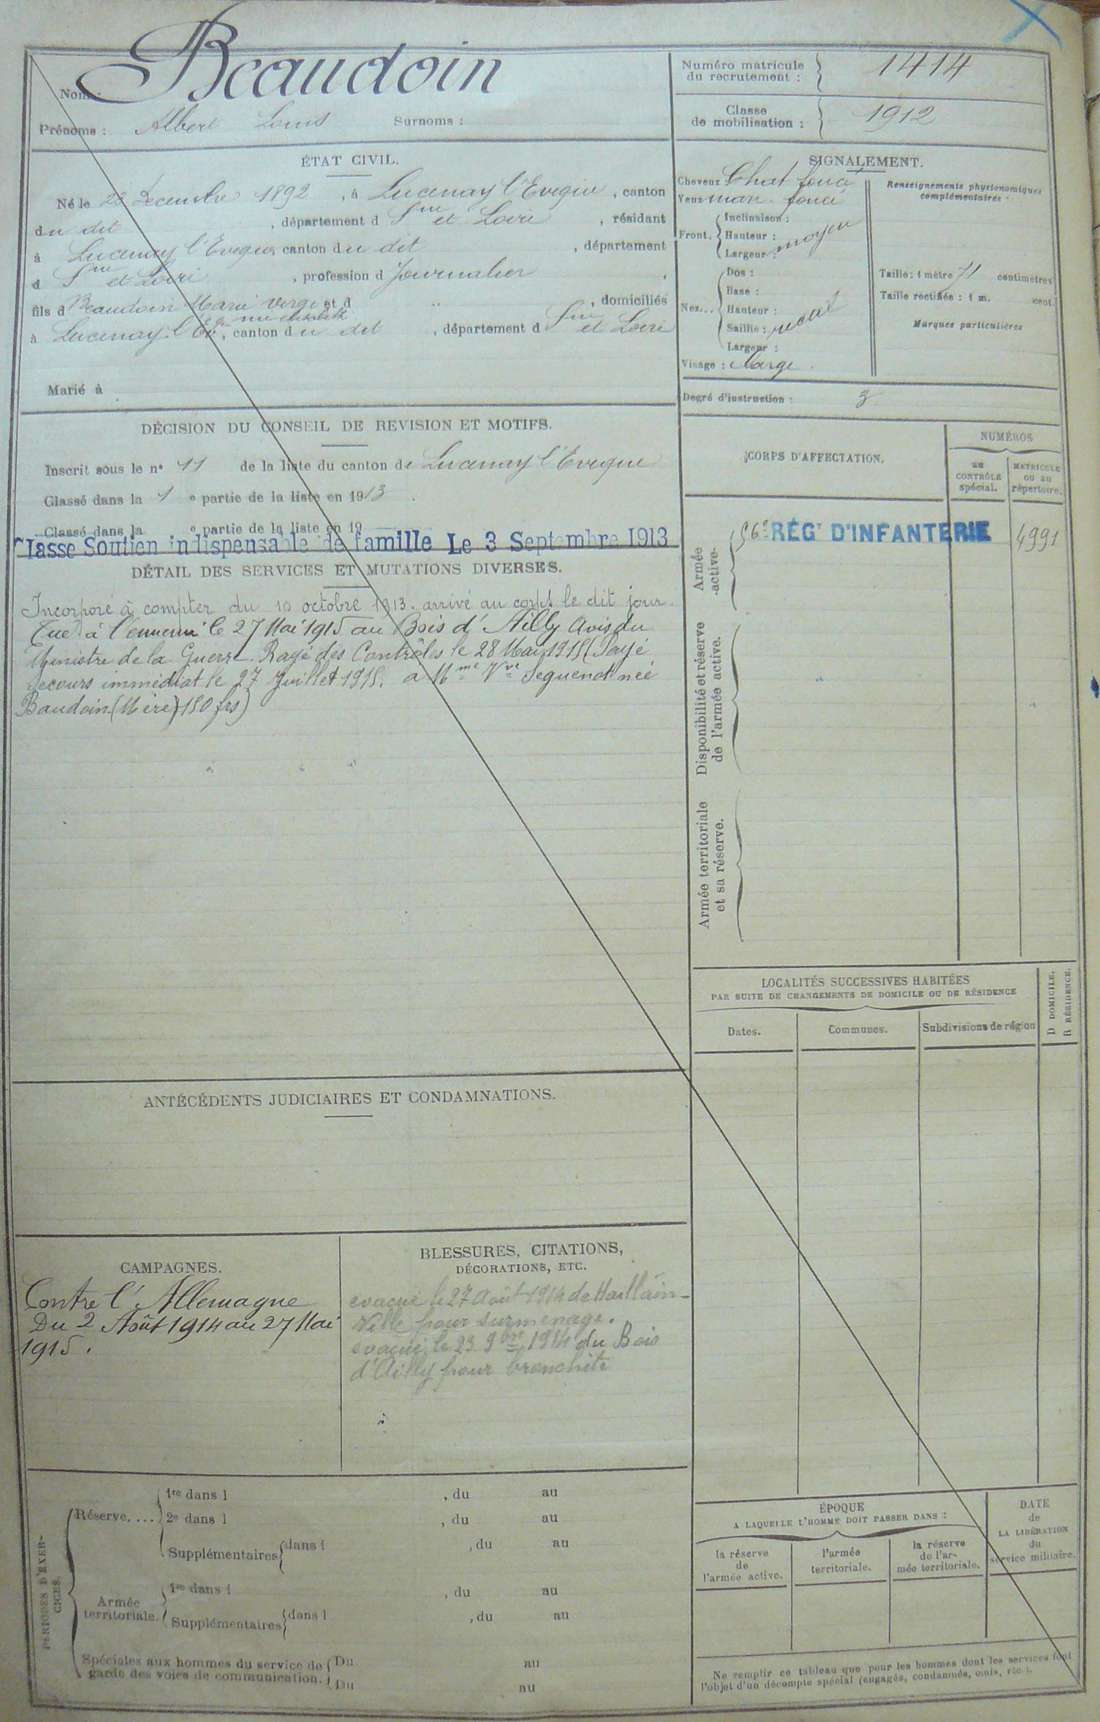 Nom : Beaudoin
Prénoms : Albert Louis Surnoms :
Numéro matricule du recrutement : 1414
Classe de mobilisation : 1912
ÉTAT CIVIL.
Né le 23 Décembre 1892, à Lucenay l'Evêque, canton
du dit, département d Sne et Loire, résidant
à Lucenay l'Evêque, canton du dit, département
d Sne et Loire, profession d Journalier,
fils d Beaudoin Marie Vierge et d " , domiciliés
à Lucenay l'Evêque, canton du dit, département d Sne et Loire
Marié à
SIGNALEMENT.
Cheveux Chat foncé
Yeux mar foncé
Front. Inclinaison :
Hauteur : moyen
Largeur :
Nez... Dos :
Base :
Hauteur :
Saillie :
Largeur :
Visage : large.
Renseignements physionomiques
complémentaires :
Taille : 1 mètre 71 centimètres
Taille rectifiée : 1 m. cent.
Marques particulières
Degré d'instruction : 3
DÉCISION DU CONSEIL DE REVISION ET MOTIFS.
Inscrit sous le n° 11 de la liste du canton de Lucenay l'Evêque
Classé dans la 1e partie de la liste en 1913.
Classé dans la e partie de la liste en 19
Classe Soutien indispensable de famille Le 3 Septembre 1913
DÉTAIL DES SERVICES ET MUTATIONS DIVERSES.
Incorporé à compter du 10 octobre 1913. arrivé au corps le dit jour.
Tué à l'ennemi le 27 Mai 1915 au Bois d'Ailly Avis du
Ministre de la Guerre. Rayé des Contrôles le 28 Mai 1915 (Payé
secours immédiat le 27 Juillet 1915. à Mme Vve Seguenot née
Baudoin (Mère) 150 frs)
CORPS D'AFFECTATION.
NUMÉROS
au CONTRÔLE spécial.
MATRICULE ou au répertoire.
Armée active.
56e RÉGt D'INFANTERIE 4991
Disponibilité et réserve de l'armée active.
Armée territoriale et sa réserve.
LOCALITÉS SUCCESSIVES HABITÉES
PAR SUITE DE CHANGEMENTS DE DOMICILE OU DE RÉSIDENCE
Dates. Communes. Subdivisions de région
D DOMICILE.
R RÉSIDENCE.
ANTÉCÉDENTS JUDICIAIRES ET CONDAMNATIONS.
CAMPAGNES.
Contre l'Allemagne
Du 2 Août 1914 au 27 Mai
1915.
BLESSURES, CITATIONS,
DÉCORATIONS, ETC.
evacué le 27 Août 1914 de Haillain-
ville pour surmenage.
evacué le 23 9bre 1914 du Bois
d'Ailly pour bronchite
PÉRIODES D'EXERCICES.
Réserve....
1re dans l , du au
2e dans l , du au
Supplémentaires dans l , du au
Armée territoriale.
1re dans l , du au
Supplémentaires dans l , du au
Spéciales aux hommes du service de garde des voies de communication.
Du au
Du au
ÉPOQUE
A LAQUELLE L'HOMME DOIT PASSER DANS :
la réserve de l'armée active.
l'armée territoriale.
la réserve de l'armée territoriale.
DATE
de
LA LIBÉRATION
du
service militaire.
Ne remplir ce tableau que pour les hommes dont les services font
l'objet d'un décompte spécial (engagés, condamnés, omis, etc.).